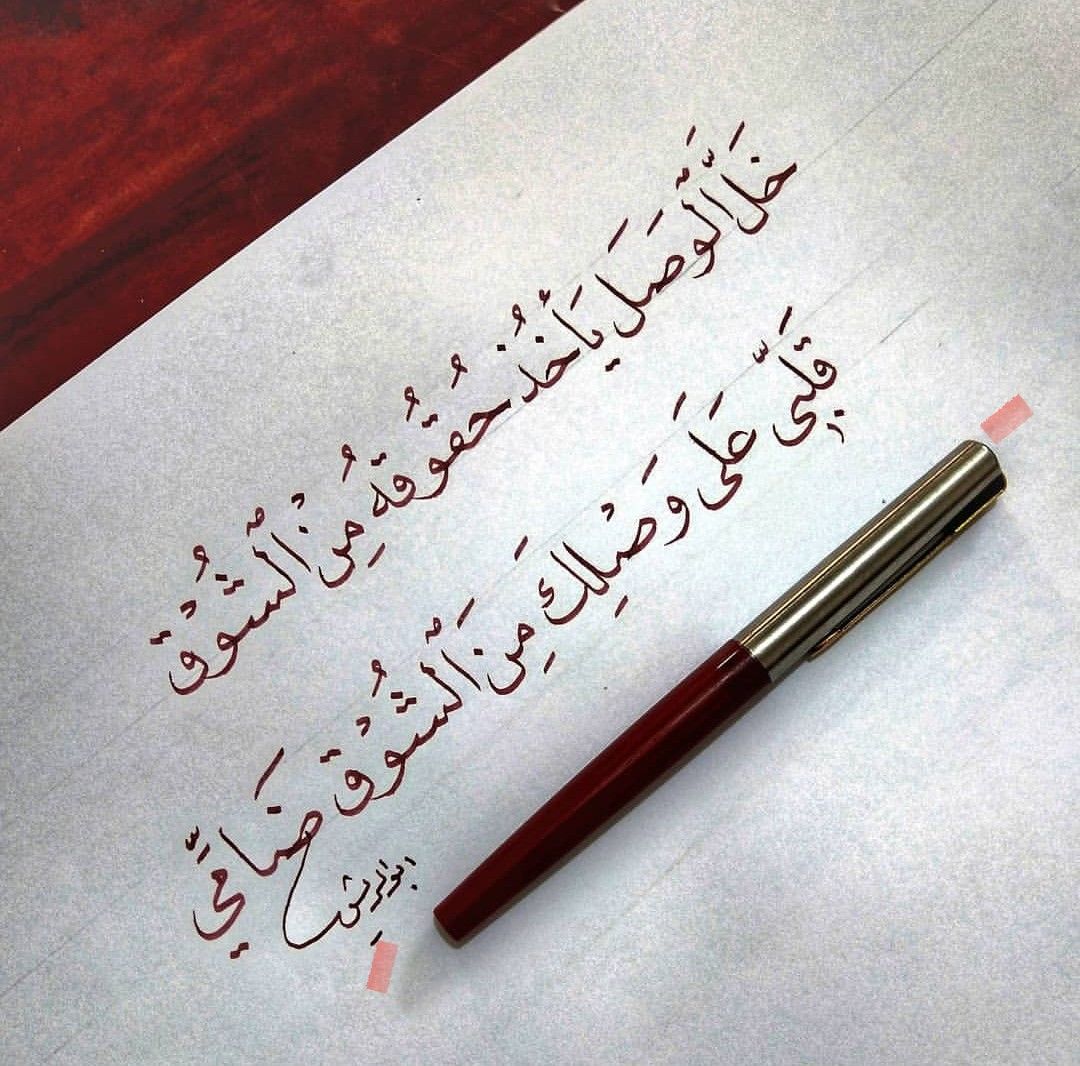 خَلَ الَّوَصَل يَأخُذ حُقُوقَهُ مِنْ الشُّوْق
قَلبِّي عَلَى وَصْلِك مِنَ الشُّوْق ضَامِّي
ابوالريش